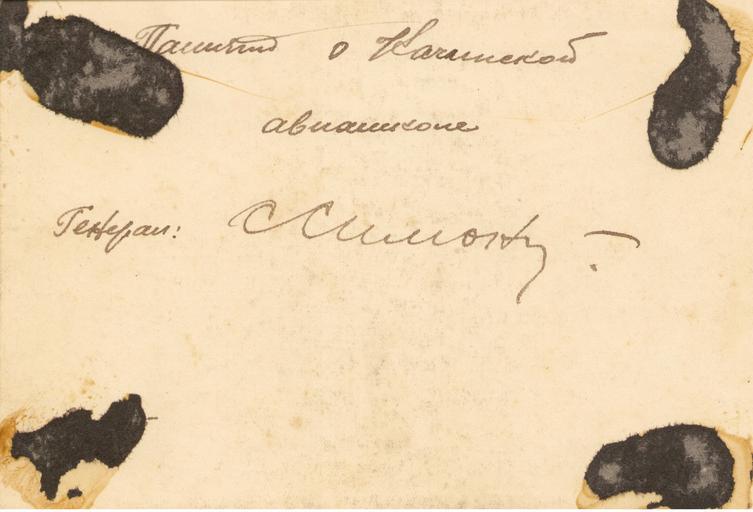 Памяти о Качинской
авиашколе
Генерал: ССимон